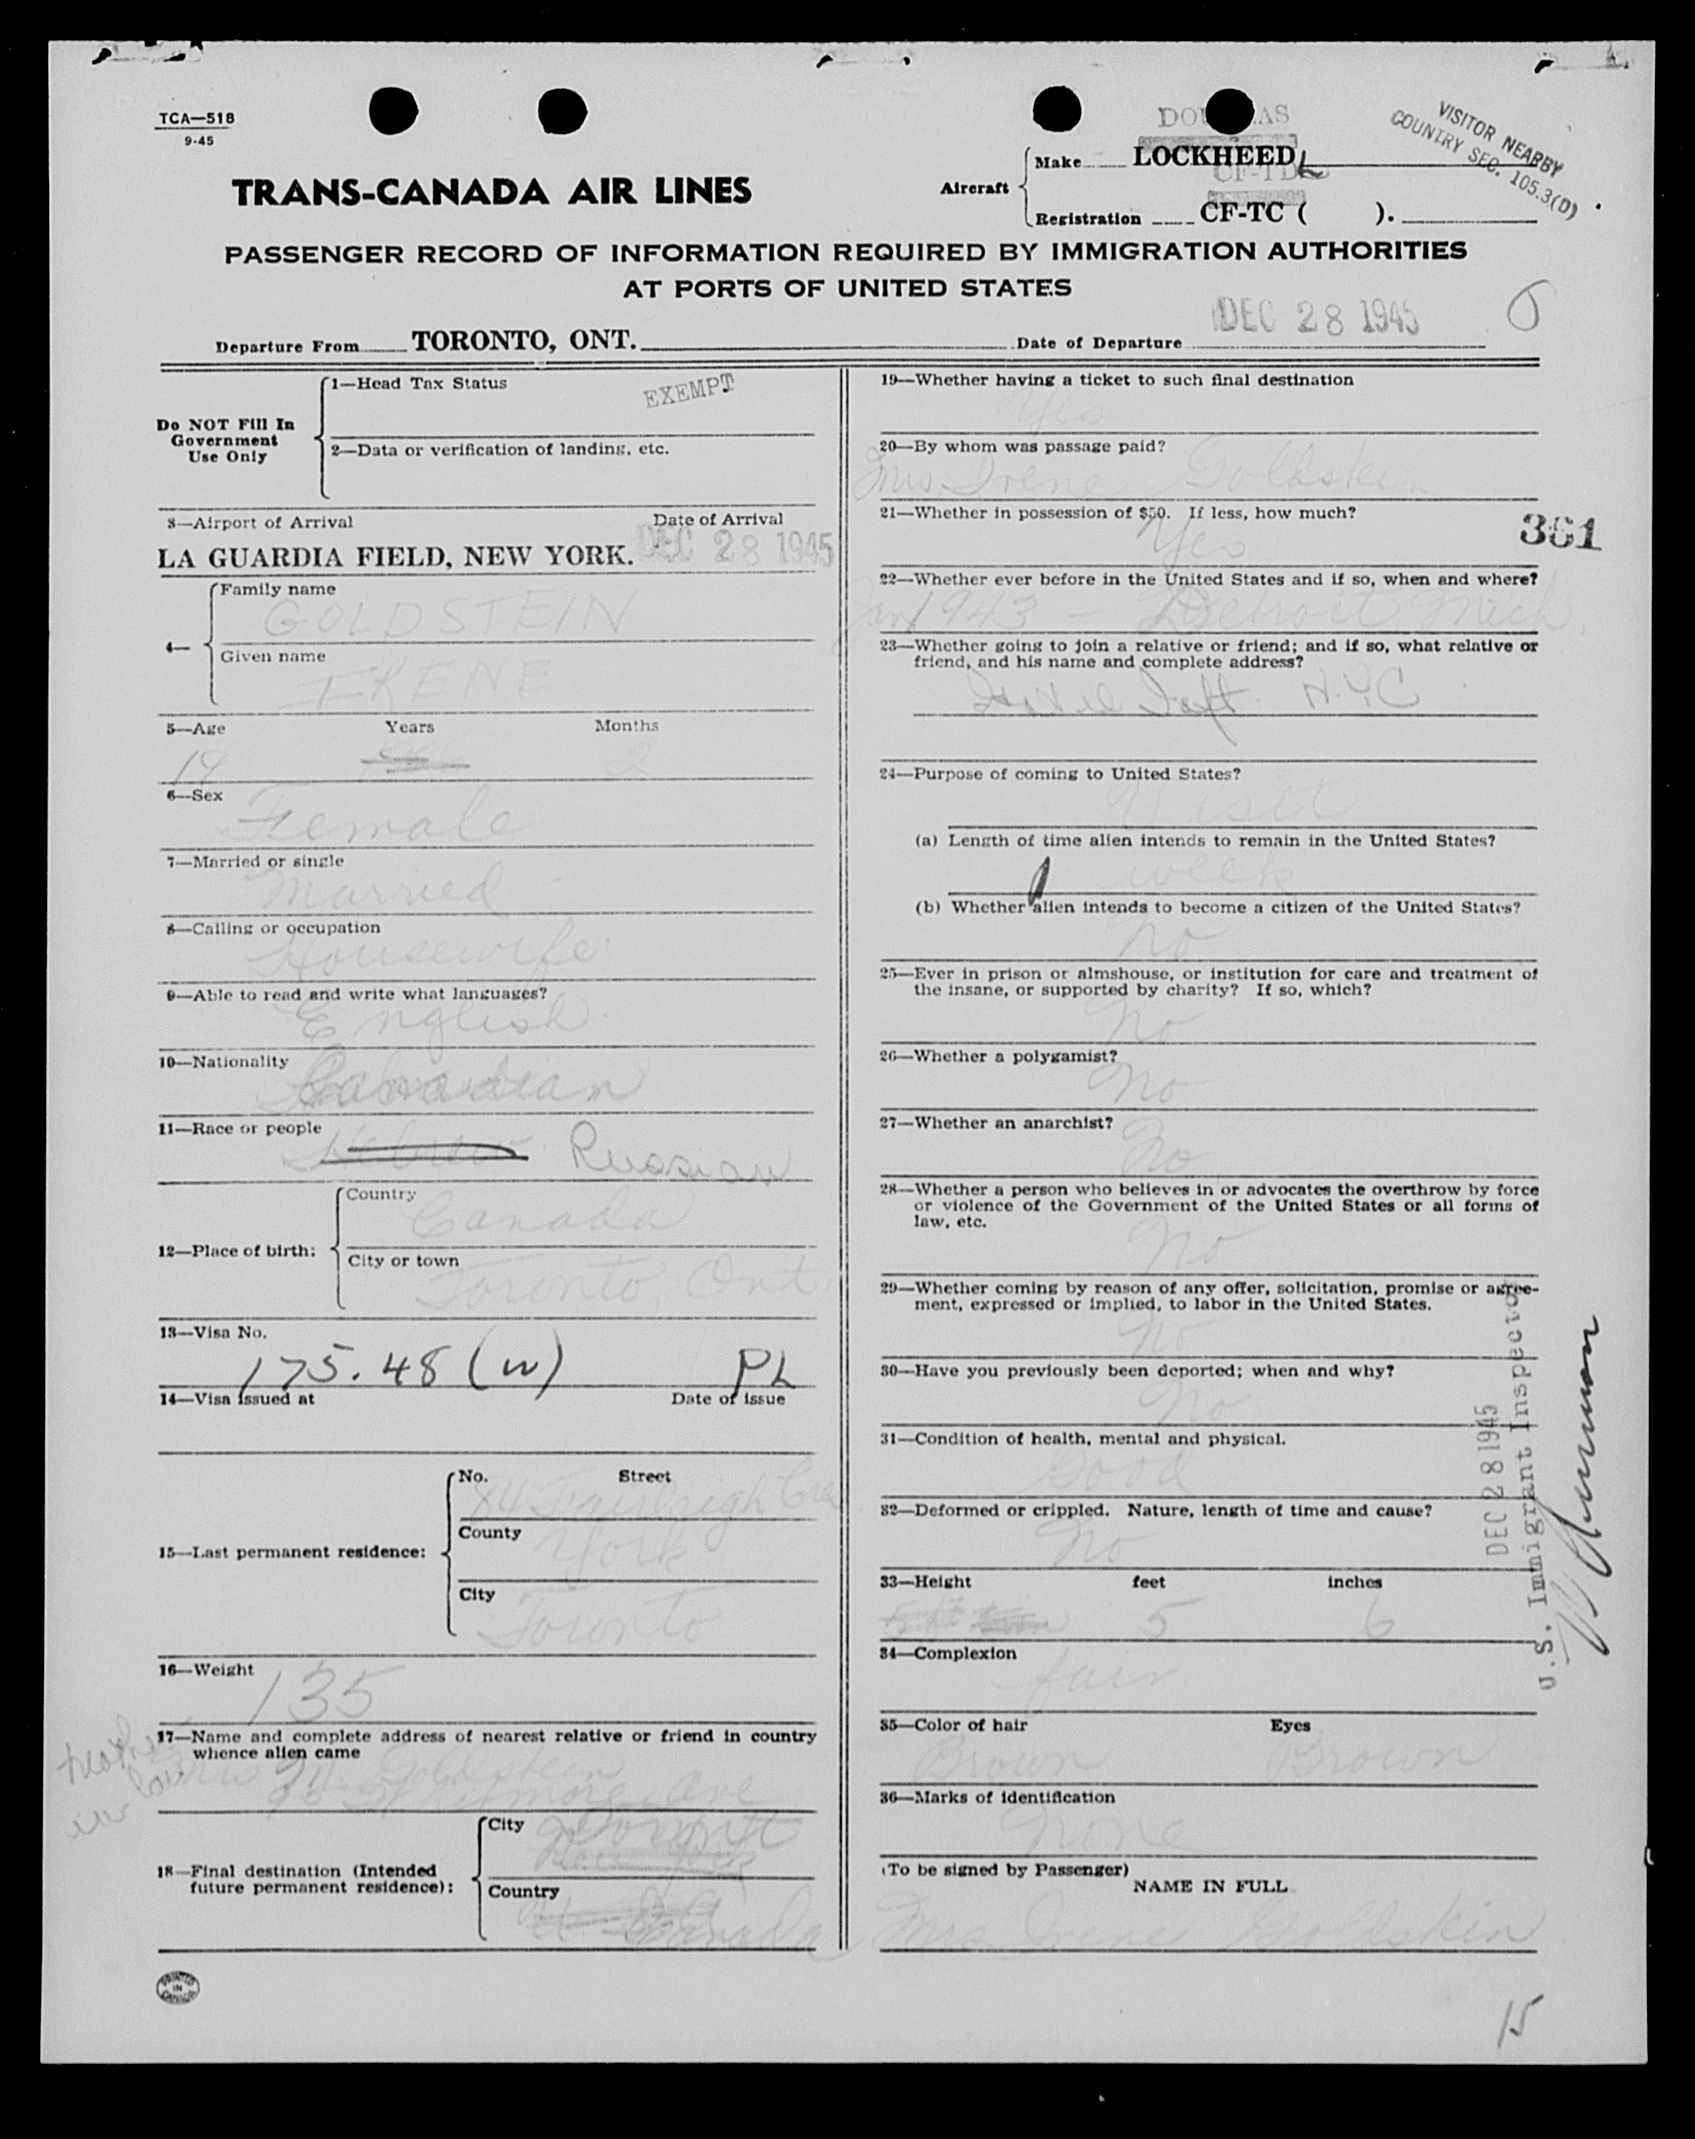 TCA—518
9-45
DOUGLAS
VISITOR NEARBY
COUNTRY SEC. 105.3(D)
TRANS-CANADA AIR LINES
Aircraft
Make LOCKHEED
CF-TD
Registration CF-TC ( ).
PASSENGER RECORD OF INFORMATION REQUIRED BY IMMIGRATION AUTHORITIES
AT PORTS OF UNITED STATES
Departure From TORONTO, ONT.
Date of Departure DEC 28 1945
Do NOT Fill In
Government
Use Only
1—Head Tax Status EXEMPT
2—Data or verification of landing, etc.
3—Airport of Arrival Date of Arrival
LA GUARDIA FIELD, NEW YORK. DEC 28 1945
4—
Family name
GOLDSTEIN
Given name
IRENE
5—Age Years Months
19 2
6—Sex
Female
7—Married or single
Married
8—Calling or occupation
Housewife
9—Able to read and write what languages?
English
10—Nationality
Canadian
11—Race or people
Hebrew Russian
12—Place of birth:
Country
Canada
City or town
Toronto, Ont
13—Visa No.
175.48 (w) PL
14—Visa issued at Date of issue
15—Last permanent residence:
No. Street
84
County
York
City
Toronto
16—Weight
135
17—Name and complete address of nearest relative or friend in country
whence alien came
mother
in law
Mrs M. Goldstein
95 Whitmore Ave
18—Final destination (Intended
future permanent residence):
City
Toronto
Country
Canada
PRINTED
IN
CANADA
19—Whether having a ticket to such final destination
Yes
20—By whom was passage paid?
Mrs. Irene Goldstein
21—Whether in possession of $50. If less, how much?
Yes
361
22—Whether ever before in the United States and if so, when and where?
Jan 1943 - Detroit Mich.
23—Whether going to join a relative or friend; and if so, what relative or
friend, and his name and complete address?
Hotel Taft. N.Y.C
24—Purpose of coming to United States?
Visit
(a) Length of time alien intends to remain in the United States?
1 week
(b) Whether alien intends to become a citizen of the United States?
No
25—Ever in prison or almshouse, or institution for care and treatment of
the insane, or supported by charity? If so, which?
No
26—Whether a polygamist?
No
27—Whether an anarchist?
No
28—Whether a person who believes in or advocates the overthrow by force
or violence of the Government of the United States or all forms of
law, etc.
No
29—Whether coming by reason of any offer, solicitation, promise or agree-
ment, expressed or implied, to labor in the United States.
No
30—Have you previously been deported; when and why?
No
31—Condition of health, mental and physical.
Good
32—Deformed or crippled. Nature, length of time and cause?
No
33—Height feet inches
5 6
34—Complexion
fair
35—Color of hair Eyes
Brown Brown
36—Marks of identification
None
(To be signed by Passenger)
NAME IN FULL
Mrs Irene Goldstein
DEC 28 1945
U.S. Immigrant Inspector
15